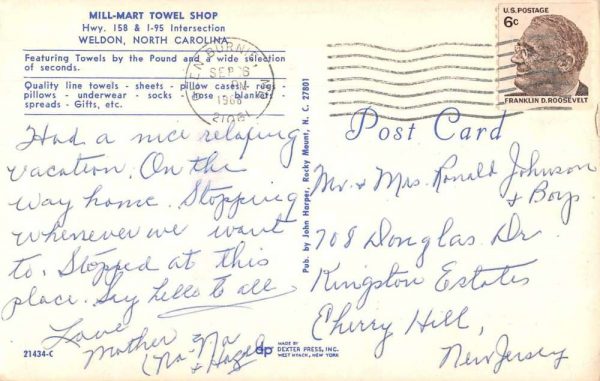 MILL-MART TOWEL SHOP
Hwy. 158 & I-95 Intersection
WELDON, NORTH CAROLINA
Featuring Towels by the Pound and a wide selection
of seconds.
Quality line towels - sheets - pillow cases - rugs -
pillows - underwear - socks - hose - blankets -
spreads - Gifts, etc.
GLEN BURNIE
SEP 6
1968
21061
U.S. POSTAGE
6c
FRANKLIN D. ROOSEVELT
Post Card
Had a nice relaxing
vacation. On the
way home. Stopping
whenever we want
to. Stopped at this
place. Say hello to all
Love
Mother
(Na-Na
+ Hazel)
Pub. by John Harper, Rocky Mount, N. C. 27801
Mr. + Mrs. Ronald Johnson
+ Boys
708 Douglas Dr.
Kingston Estates
Cherry Hill,
New Jersey
21434-C
dp
MADE BY
DEXTER PRESS, INC.
WEST NYACK, NEW YORK